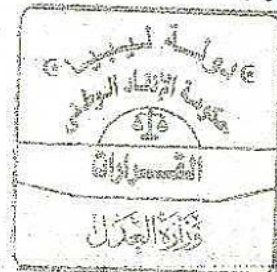 دولة ليبيا
حكومة الإنقاذ الوطني
القرارات
وزارة العدل